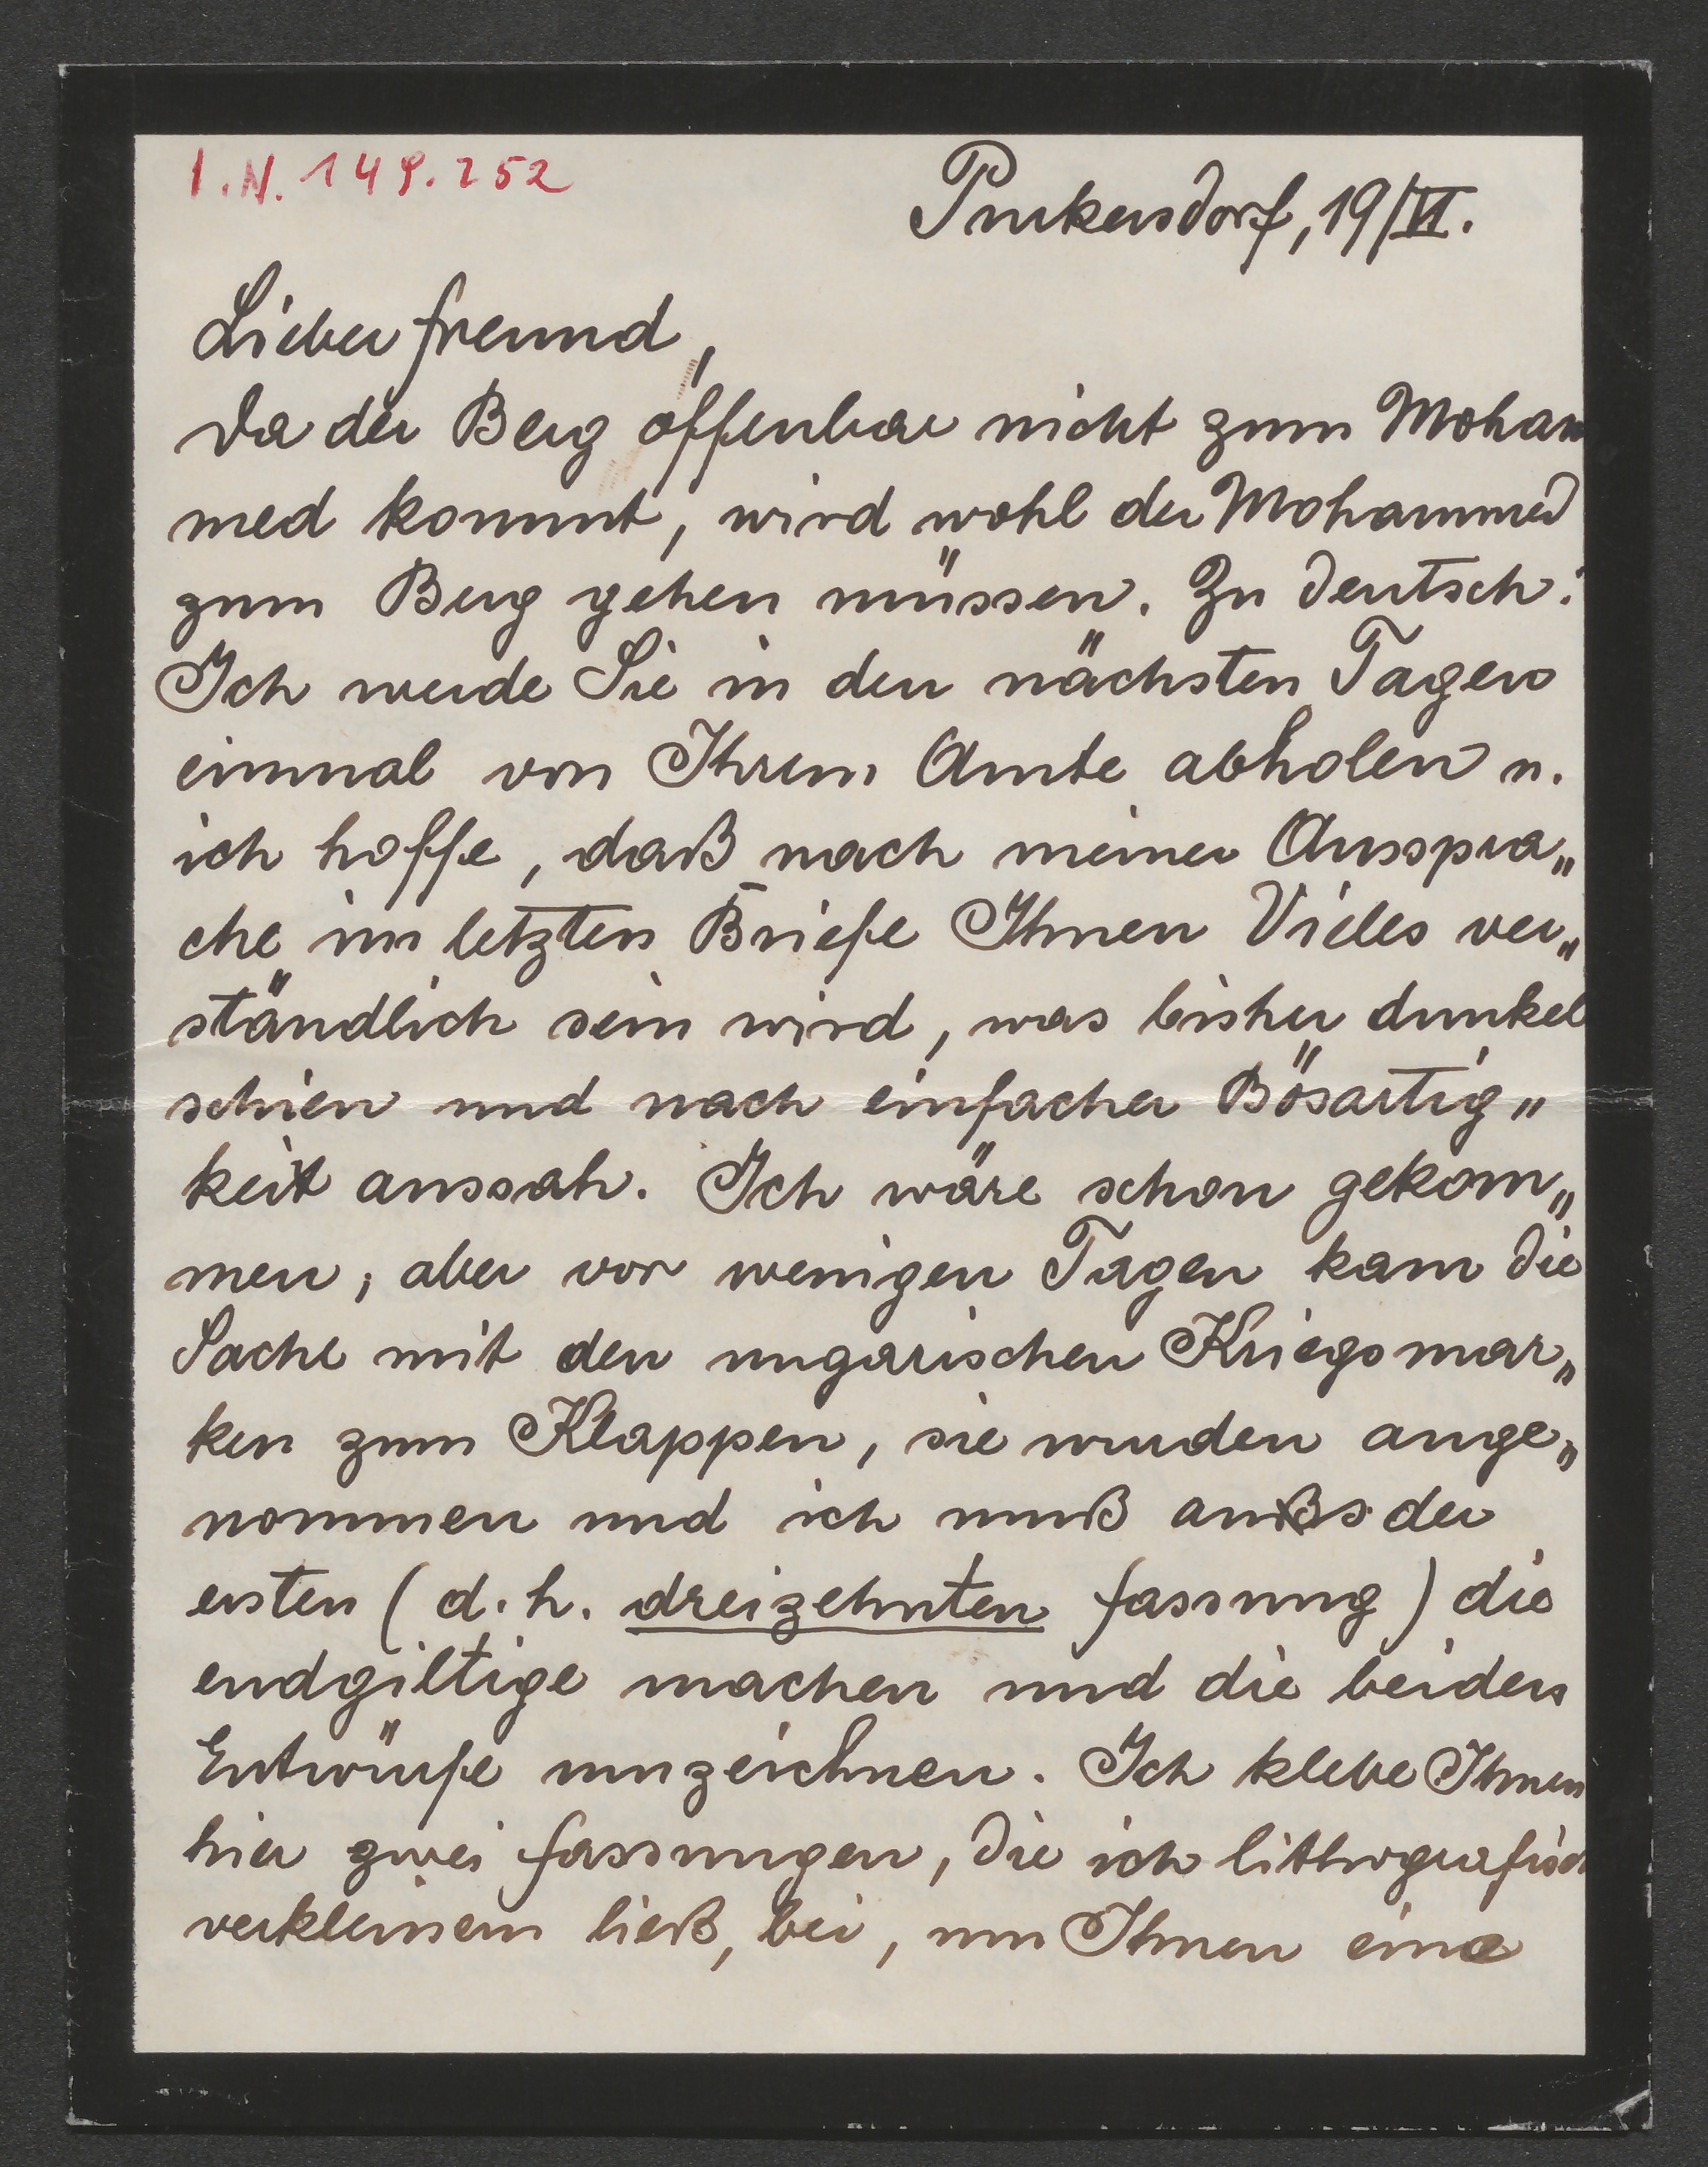 I.N. 149.252
Purkersdorf, 19/VI.
Lieber Freund,
da der Berg offenbar nicht zum Moham
med kommt, wird wohl der Mohammed
zum Berg gehen müssen. Zu deutsch:
Ich werde Sie in den nächsten Tagen
einmal von Ihrem Amte abholen u.
ich hoffe, daß nach meiner Ausspra„
che im letzten Briefe Ihnen Vieles ver„
ständlich sein wird, was bisher dunkel
schien und nach einfacher Bösartig„
keit aussah. Ich wäre schon gekom„
men, aber vor wenigen Tagen kam die
Sache mit den ungarischen Kriegsmar„
ken zum Klappen, sie wurden ange„
nommen und ich muß aus der
ersten (d. h. dreizehnten Fassung) die
endgiltige machen und die beiden
Entwürfe umzeichnen. Ich klebe Ihnen
hier zwei Fassungen, die ich lithografisch
verkleinern ließ, bei, um Ihnen eine